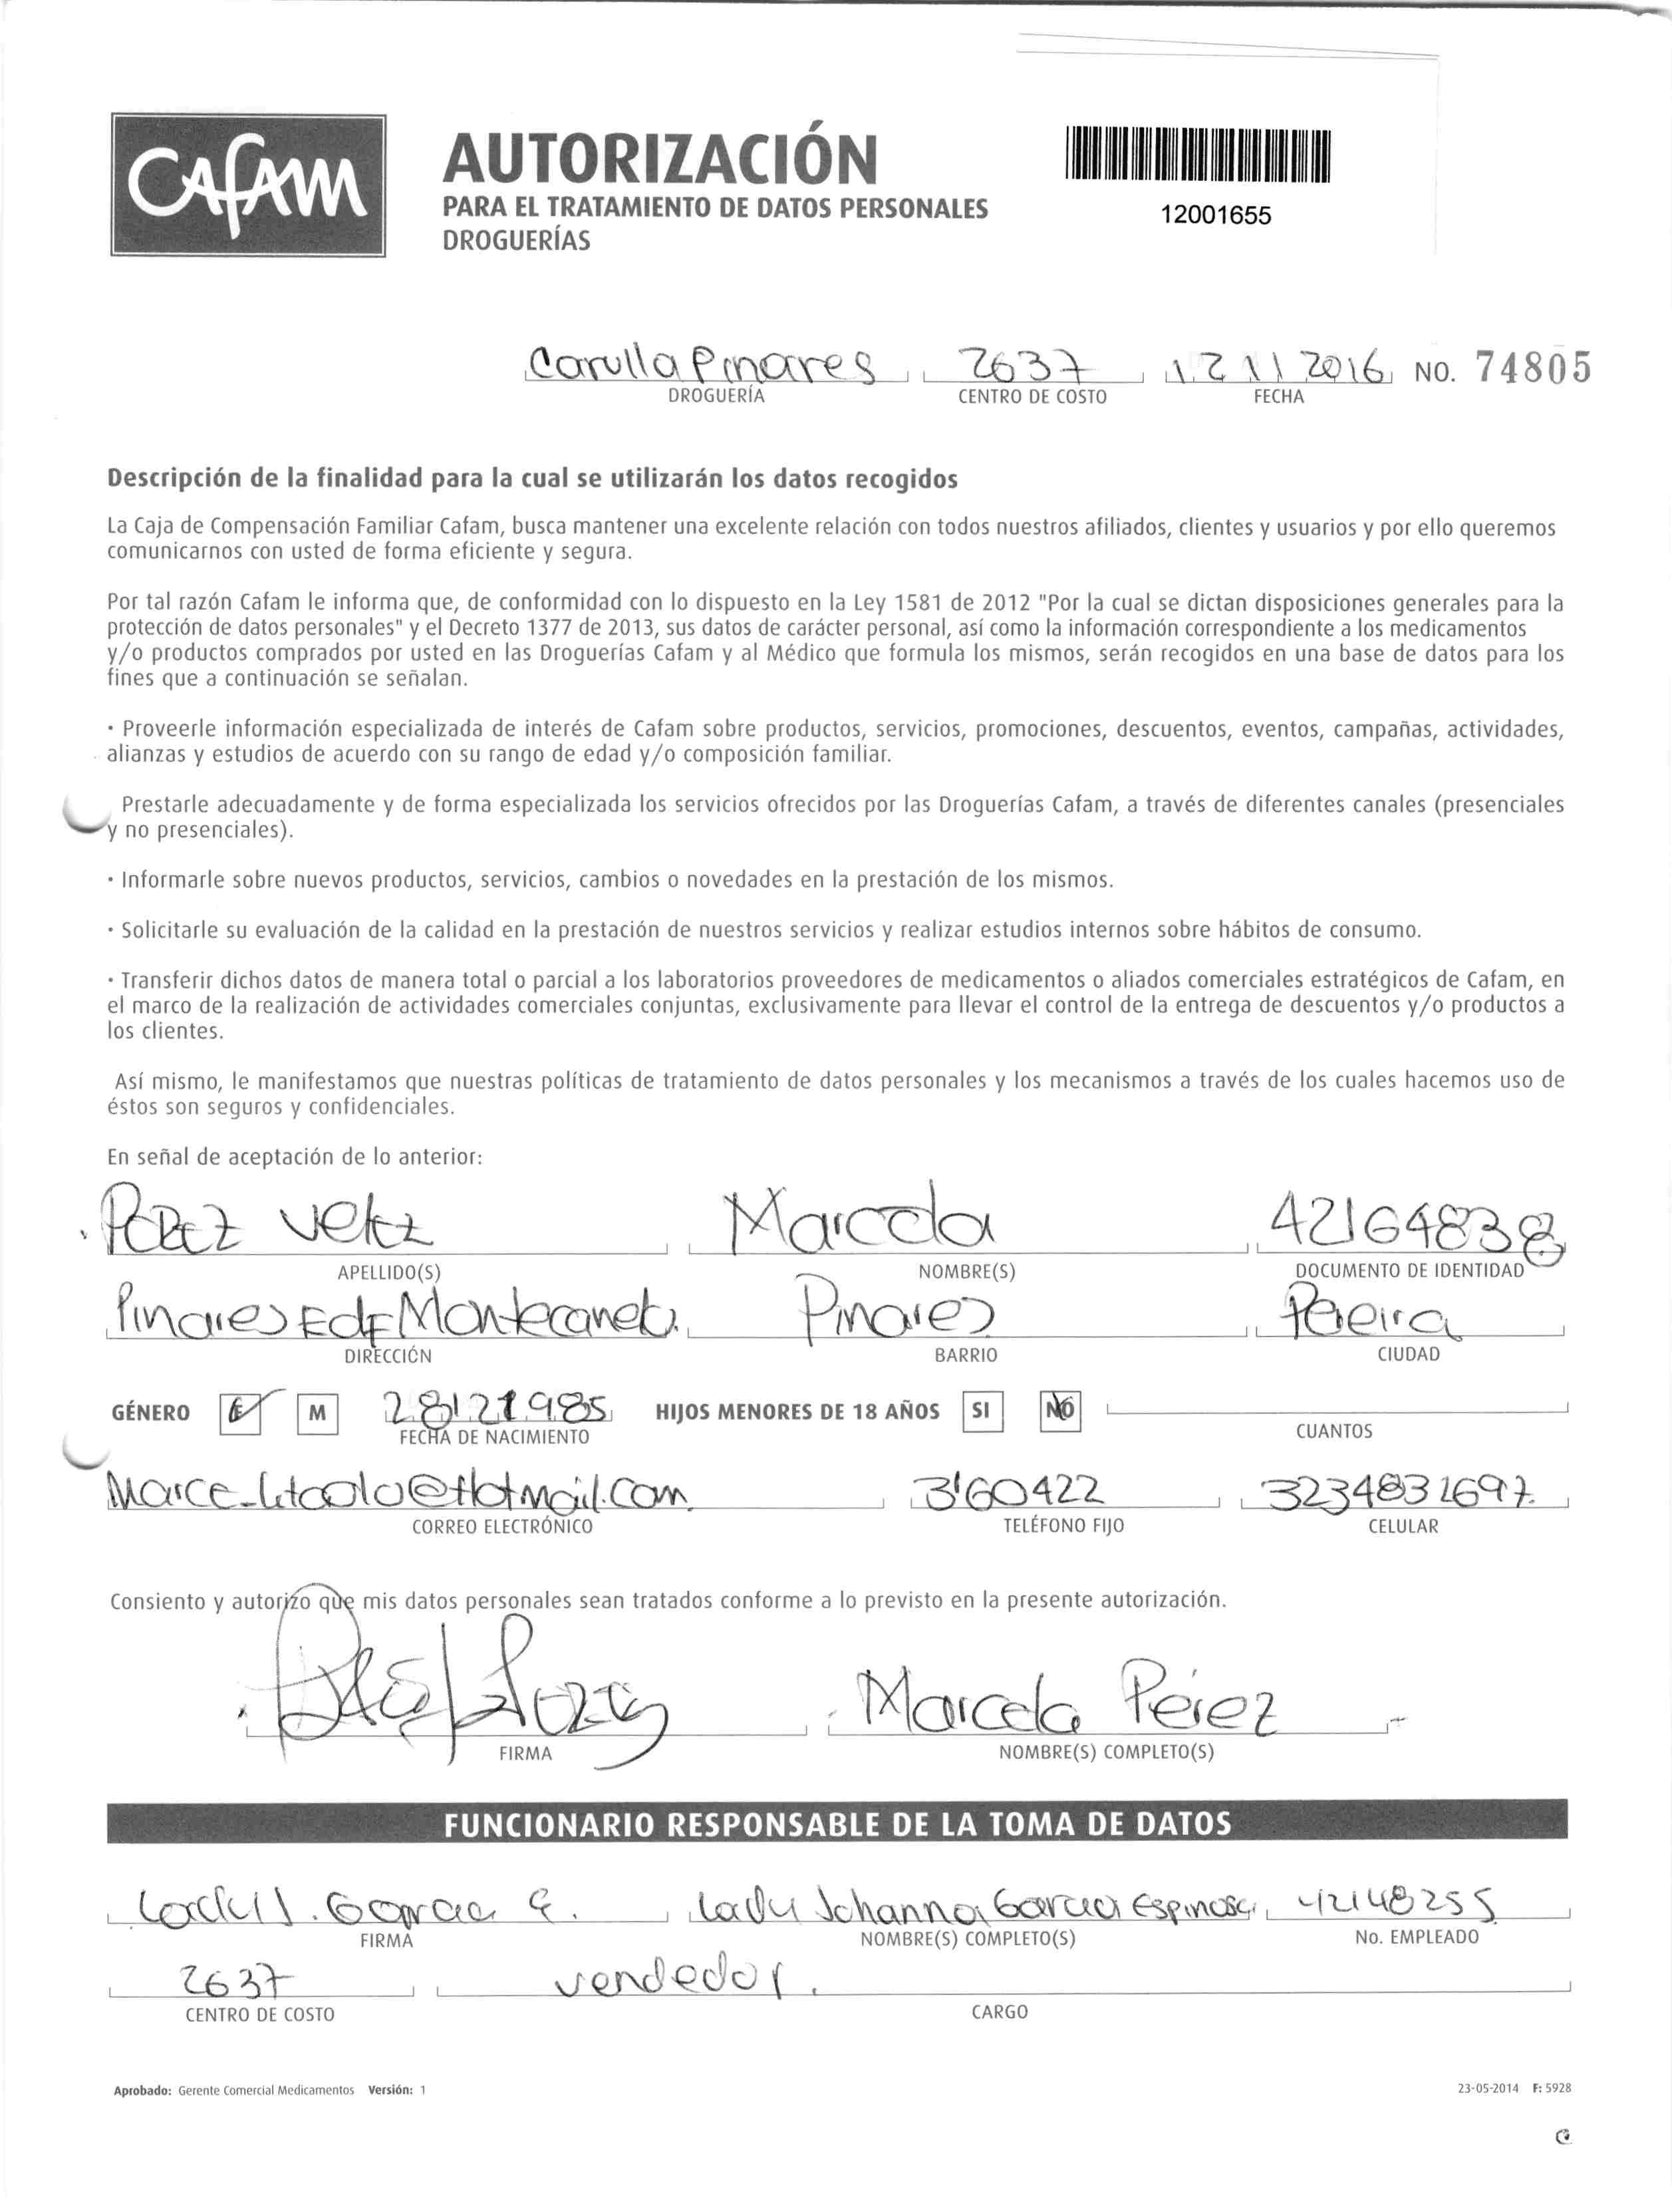 CAFAM
AUTORIZACIÓN
PARA EL TRATAMIENTO DE DATOS PERSONALES
DROGUERÍAS
12001655
Carulla Pinares 2637 12 11 2016 NO. 74805
DROGUERÍA CENTRO DE COSTO FECHA
Descripción de la finalidad para la cual se utilizarán los datos recogidos
La Caja de Compensación Familiar Cafam, busca mantener una excelente relación con todos nuestros afiliados, clientes y usuarios y por ello queremos
comunicarnos con usted de forma eficiente y segura.
Por tal razón Cafam le informa que, de conformidad con lo dispuesto en la Ley 1581 de 2012 "Por la cual se dictan disposiciones generales para la
protección de datos personales" y el Decreto 1377 de 2013, sus datos de carácter personal, así como la información correspondiente a los medicamentos
y/o productos comprados por usted en las Droguerías Cafam y al Médico que formula los mismos, serán recogidos en una base de datos para los
fines que a continuación se señalan.
· Proveerle información especializada de interés de Cafam sobre productos, servicios, promociones, descuentos, eventos, campañas, actividades,
alianzas y estudios de acuerdo con su rango de edad y/o composición familiar.
Prestarle adecuadamente y de forma especializada los servicios ofrecidos por las Droguerías Cafam, a través de diferentes canales (presenciales
y no presenciales).
· Informarle sobre nuevos productos, servicios, cambios o novedades en la prestación de los mismos.
· Solicitarle su evaluación de la calidad en la prestación de nuestros servicios y realizar estudios internos sobre hábitos de consumo.
· Transferir dichos datos de manera total o parcial a los laboratorios proveedores de medicamentos o aliados comerciales estratégicos de Cafam, en
el marco de la realización de actividades comerciales conjuntas, exclusivamente para llevar el control de la entrega de descuentos y/o productos a
los clientes.
Así mismo, le manifestamos que nuestras políticas de tratamiento de datos personales y los mecanismos a través de los cuales hacemos uso de
éstos son seguros y confidenciales.
En señal de aceptación de lo anterior:
Perez Velez Marcela 42164838
APELLIDO(S) NOMBRE(S) DOCUMENTO DE IDENTIDAD
Pinares Edf Pinares Pereira
DIRECCIÓN BARRIO CIUDAD
GÉNERO F M 28121985 HIJOS MENORES DE 18 AÑOS SI NO
FECHA DE NACIMIENTO CUANTOS
3160422 3234831697
CORREO ELECTRÓNICO TELÉFONO FIJO CELULAR
Consiento y autorizo que mis datos personales sean tratados conforme a lo previsto en la presente autorización.
Marcela Pérez
FIRMA NOMBRE(S) COMPLETO(S)
FUNCIONARIO RESPONSABLE DE LA TOMA DE DATOS
Lady J. Garcia E. Lady Johanna Garcia Espinosa 42148255
FIRMA NOMBRE(S) COMPLETO(S) No. EMPLEADO
2637 vendedor.
CENTRO DE COSTO CARGO
Aprobado: Gerente Comercial Medicamentos Versión: 1 23-05-2014 F: 5928